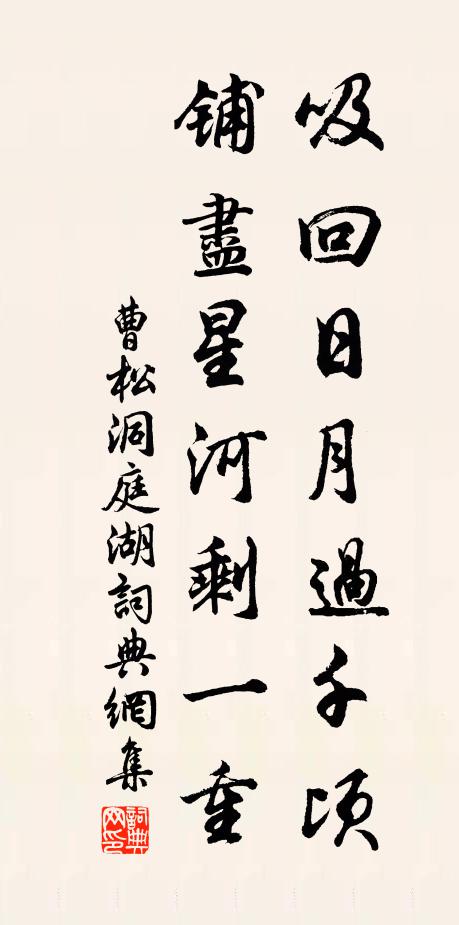 吸回日月過千頃
鋪盡星河剩一重
曹松洞庭湖詞典網集
詞典網印